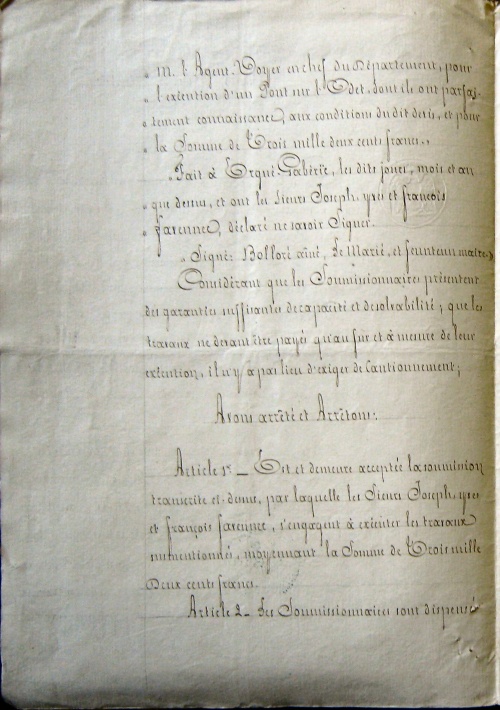 „ M. l'Agent-Voyer en chef du Département, pour
„ l'exécution d'un Pont sur l'Odet, dont ils ont parfai-
„ tement connaissance, aux conditions du dit devis, et pour
„ la Somme de Trois mille deux cents francs.„
„ Fait à Ergué-Gabéric, les dits jour, mois et an
que dessus, et ont les Sieurs Joseph, yves et françois
farennec, déclaré ne savoir Signer.
„ Signé: Bolloré ainé, Le Marié, et feunteun maire.„
Considérant que les Soumissionnaires présentent
des garanties suffisantes de capacité et de solvabilité; que les
travaux ne devant être payés qu'au fur et à mesure de leur
exécution, il n'y a pas lieu d'exiger de Cautionnement;
Avons arrêté et Arrêtons:
Article 1er _ Est et demeure acceptée la soumission
transcrite ci-dessus, par laquelle les Sieurs Joseph, yves
et françois farennec, s'engagent à exécuter les travaux
susmentionnés, moyennant la Somme de Trois mille
Deux cents francs.
Article 2 _ Les Soumissionnaires sont dispensés